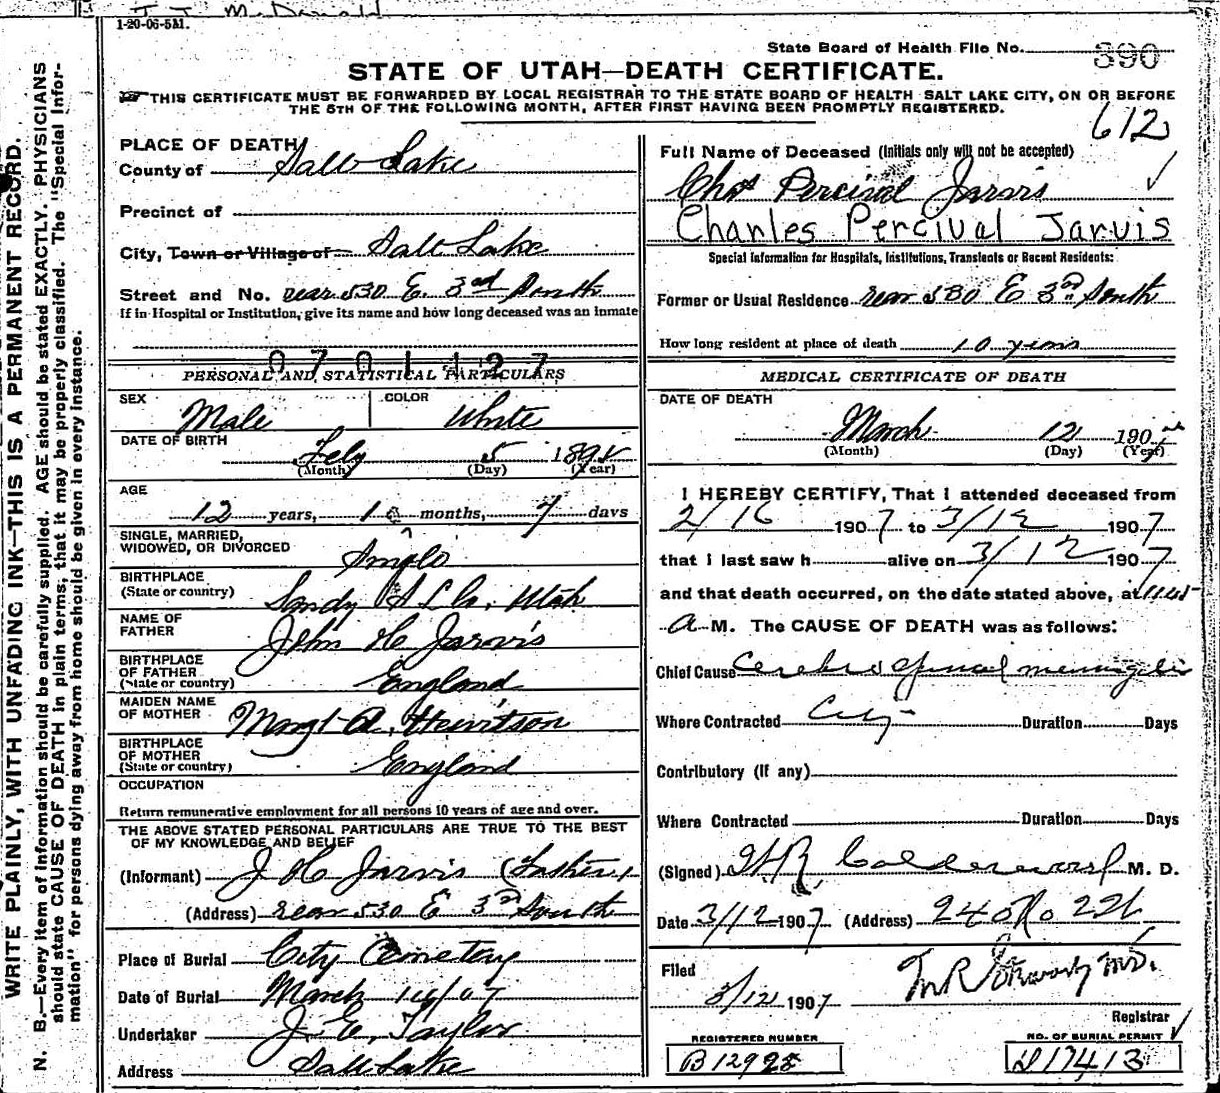 J. J. McDonald
1-20-06-5M.
State Board of Health File No. 390
STATE OF UTAH—DEATH CERTIFICATE.
THIS CERTIFICATE MUST BE FORWARDED BY LOCAL REGISTRAR TO THE STATE BOARD OF HEALTH SALT LAKE CITY, ON OR BEFORE
THE 5TH OF THE FOLLOWING MONTH, AFTER FIRST HAVING BEEN PROMPTLY REGISTERED.
612
WRITE PLAINLY, WITH UNFADING INK—THIS IS A PERMANENT RECORD.
N. B.—Every item of information should be carefully supplied. AGE should be stated EXACTLY. PHYSICIANS
should state CAUSE OF DEATH in plain terms, that it may be properly classified. The "Special Infor-
mation" for persons dying away from home should be given in every instance.
PLACE OF DEATH
County of Salt Lake
Precinct of
City, Town or Village of Salt Lake
Street and No. rear 530 E. 3rd South
If in Hospital or Institution, give its name and how long deceased was an inmate
0701127
PERSONAL AND STATISTICAL PARTICULARS
SEX Male COLOR White
DATE OF BIRTH
Feby 5 189
(Month) (Day) (Year)
AGE
12 years, 1 months, 7 days
SINGLE, MARRIED,
WIDOWED, OR DIVORCED Single
BIRTHPLACE
(State or country) Sandy S L Co. Utah
NAME OF
FATHER John H Jarvis
BIRTHPLACE
OF FATHER
(State or country) England
MAIDEN NAME
OF MOTHER Margt A. Hewitson
BIRTHPLACE
OF MOTHER
(State or country) England
OCCUPATION
Return remunerative employment for all persons 10 years of age and over.
THE ABOVE STATED PERSONAL PARTICULARS ARE TRUE TO THE BEST
OF MY KNOWLEDGE AND BELIEF
(Informant) J H Jarvis (Father)
(Address) rear 530 E 3rd South
Place of Burial City Cemetery
Date of Burial March 14/07
Undertaker J. E. Taylor
Address Salt Lake
Full Name of Deceased (Initials only will not be accepted)
Chas Percival Jarvis
Charles Percival Jarvis
Special Information for Hospitals, Institutions, Transients or Recent Residents:
Former or Usual Residence rear 530 E 3rd South
How long resident at place of death 10 years
MEDICAL CERTIFICATE OF DEATH
DATE OF DEATH
March 12 190
(Month) (Day) (Year)
I HEREBY CERTIFY, That I attended deceased from
2/16 1907 to 3/12 1907
that I last saw h alive on 3/12 1907
and that death occurred, on the date stated above, at 1145
A M. The CAUSE OF DEATH was as follows:
Chief Cause Cerebro spinal meningitis
Where Contracted City Duration Days
Contributory (If any)
Where Contracted Duration Days
(Signed) M. D.
Date 3/12 1907 (Address)
Filed
3/12 1907
Registrar
REGISTERED NUMBER
B12998
NO. OF BURIAL PERMIT
D17413